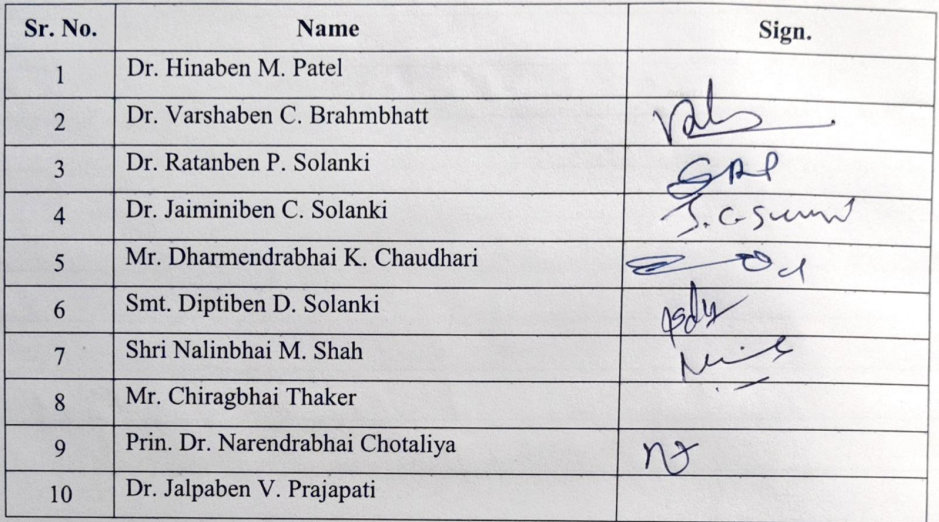 Sr. No. Name Sign.
1 Dr. Hinaben M. Patel
2 Dr. Varshaben C. Brahmbhatt
3 Dr. Ratanben P. Solanki
4 Dr. Jaiminiben C. Solanki
5 Mr. Dharmendrabhai K. Chaudhari
6 Smt. Diptiben D. Solanki
7 Shri Nalinbhai M. Shah
8 Mr. Chiragbhai Thaker
9 Prin. Dr. Narendrabhai Chotaliya
10 Dr. Jalpaben V. Prajapati